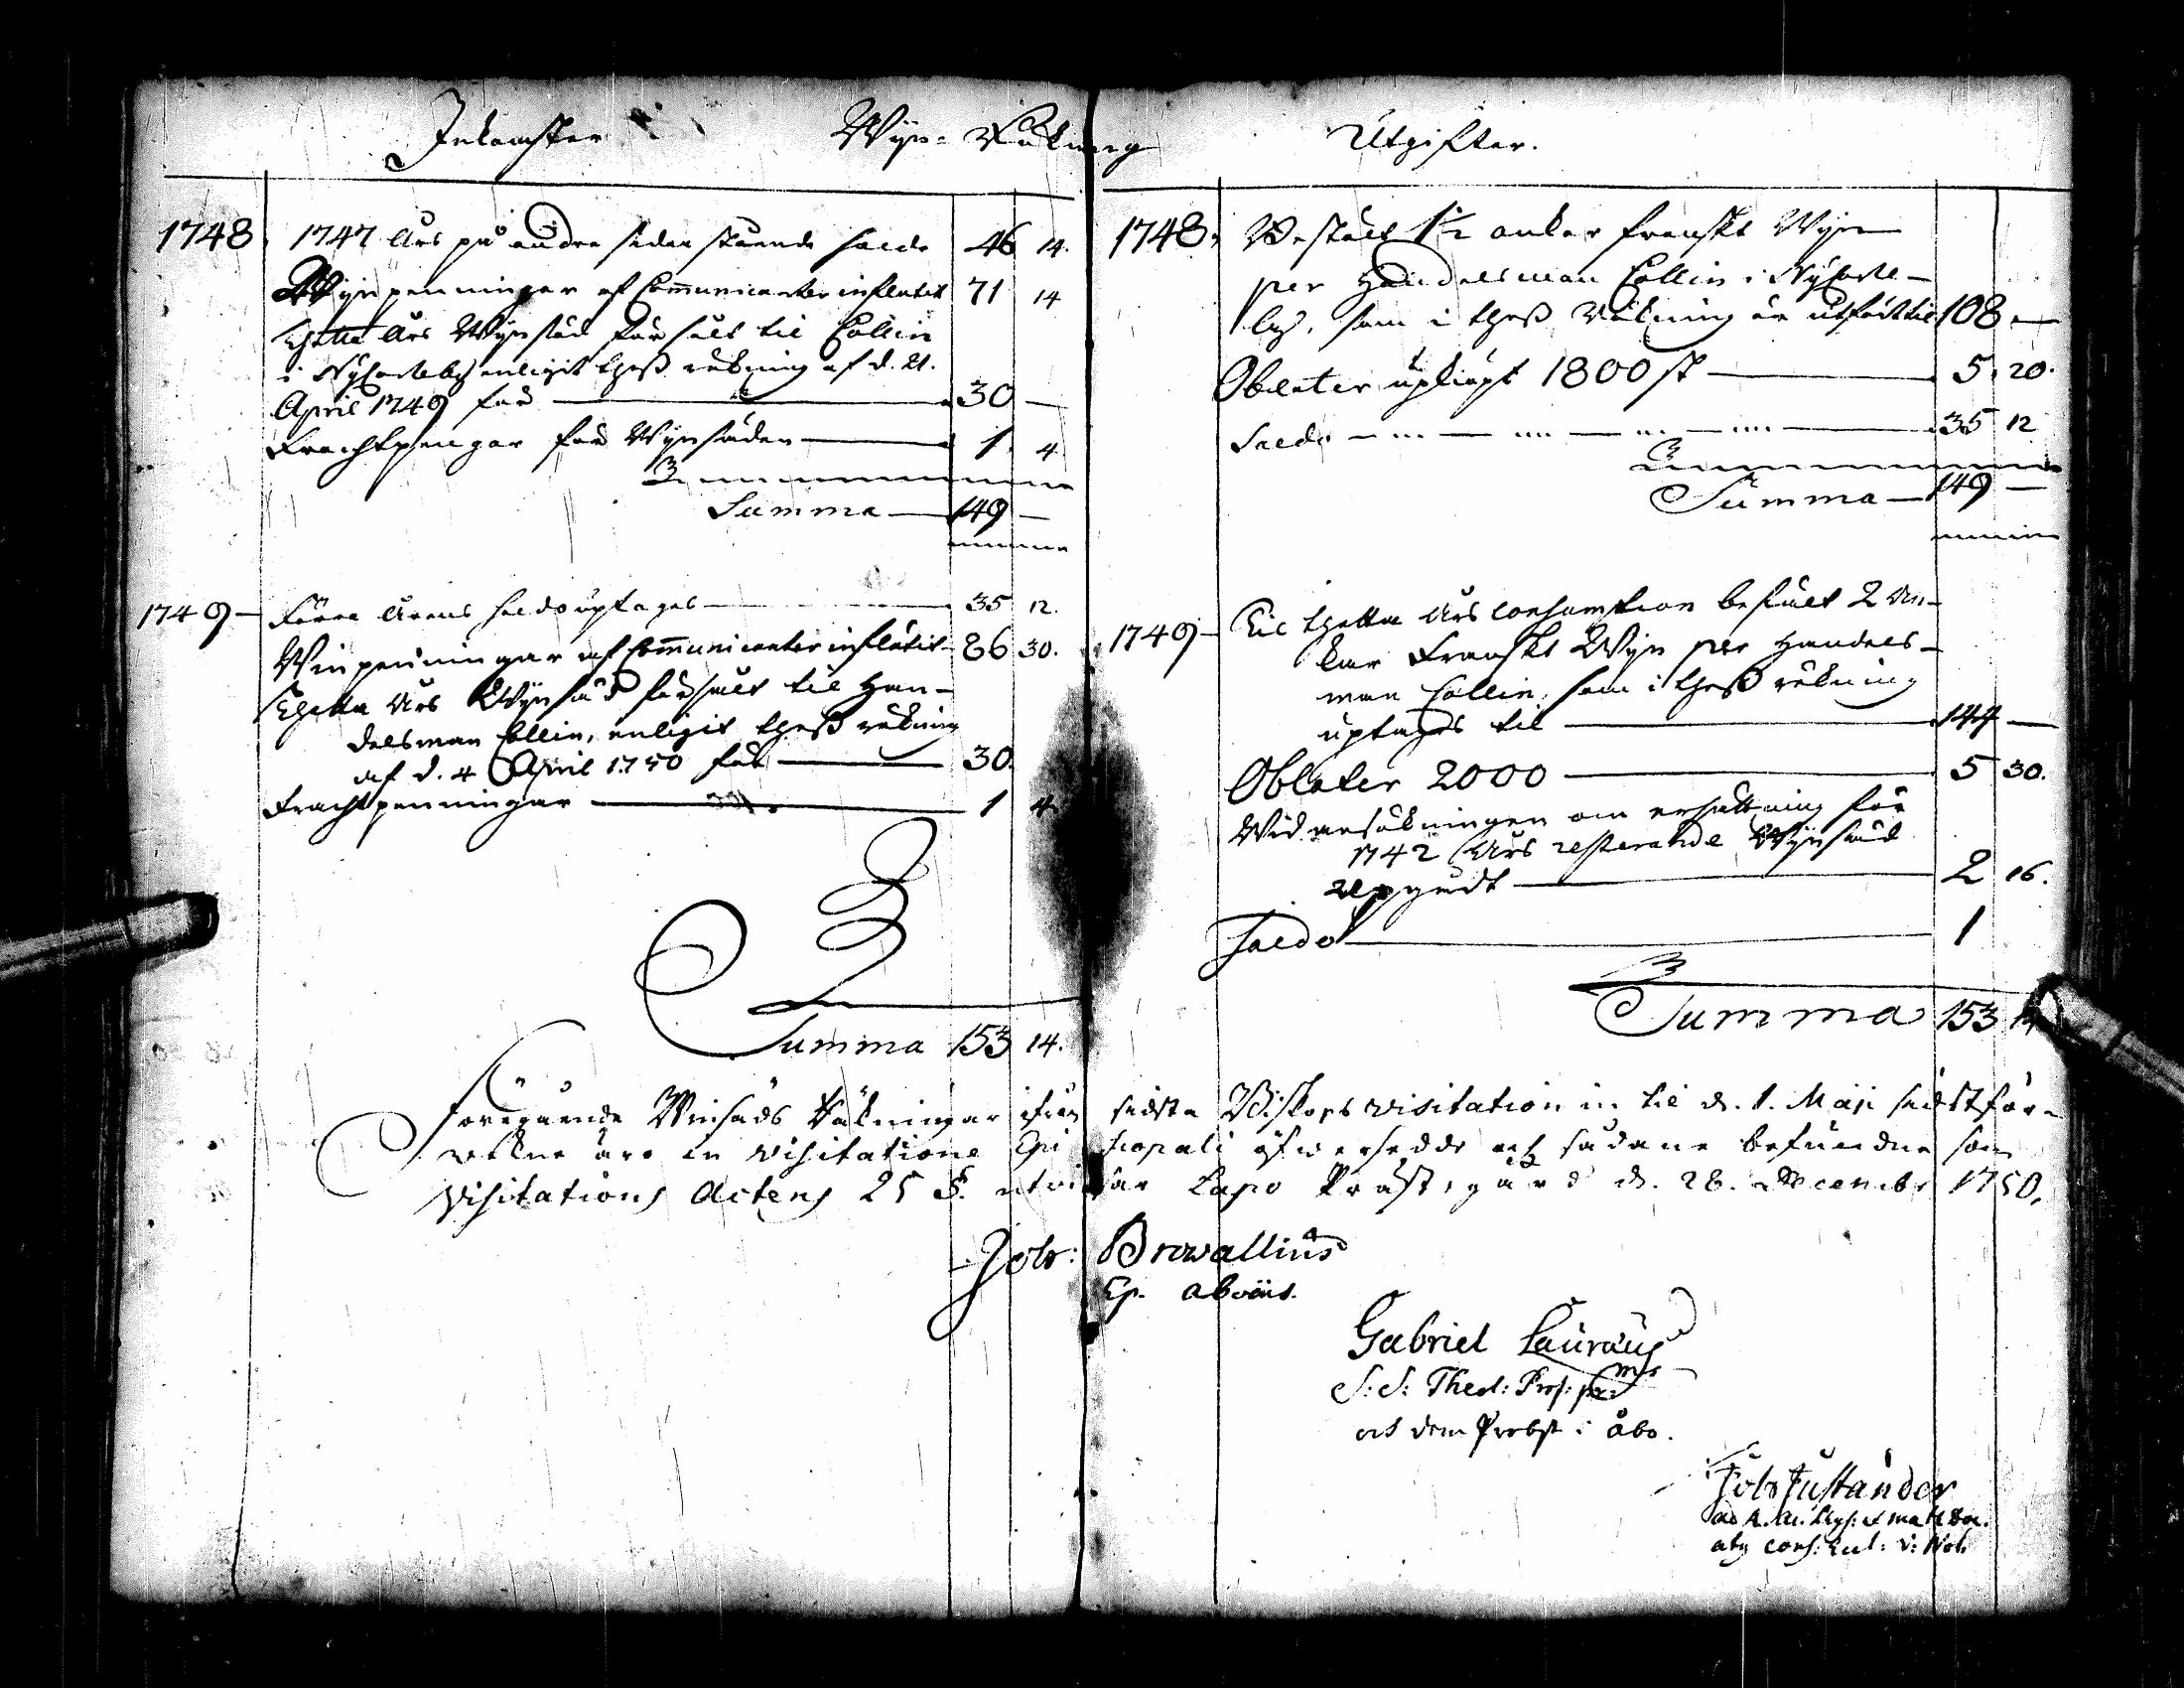 Inkomster
Wijn-Räkning
1748. 1747 Års på andra sidan stående saldo 46 14.
Wijnpenningar af Communicanter influtit 71 14
Thetta Års Wijnsäd försålt til Collin
i NyCarleby enligit thess räkning af d. 21.
April 1749 för — 30 —
Frachtpengar för Wijnsäden — 1. 4
Summa — 149 —
1749 — Förra Årens saldo uptages — 35 12.
Winpenningar af Communicanter influtit — 86 30.
Thetta Års Wijnsäd försålt til Han-
delsman Collin, enligit thess räkning
af d. 4 April 1750 för — 30.
Frachtpenningar — 1 4
Summa 153 14.
Utgifter.
1748. Bestält 1½ ankar franskt Wijn
per Handelsman Collin i NyCarle-
by, som i thess Räkning är utfört til 108 —
Oblater upköpt 1800 st — 5. 20.
Saldo — 35 12
Summa — 149 —
1749 — Til thetta Års consumtion bestält 2 An-
kar Franskt Wijn per Handels-
man Collin, som i thess räkning
uptages til — 144 —
Oblater 2000 — 5 30.
Wid ansökningen om ersättning för
1742 Års resterande Wijnsäd
— 2 16.
Saldo — 1
Summa 153 14
Föregående Winsäds Räkningar ifrån sidsta Biskops visitation in til d. 1. Maji sidstför-
vekne äro in visitatione Episcopali öfwersedde och sådane befundne som
Visitations Actens 25 §. utvisar Lapo Prästegård d. 28. Decembr 1750.
Joh: Browallius
Ep. Aboëns.
Gabriel Lauræus
S: S: Theol: Prof: pr: mus
och dom Probst i Åbo.
Joh Justander